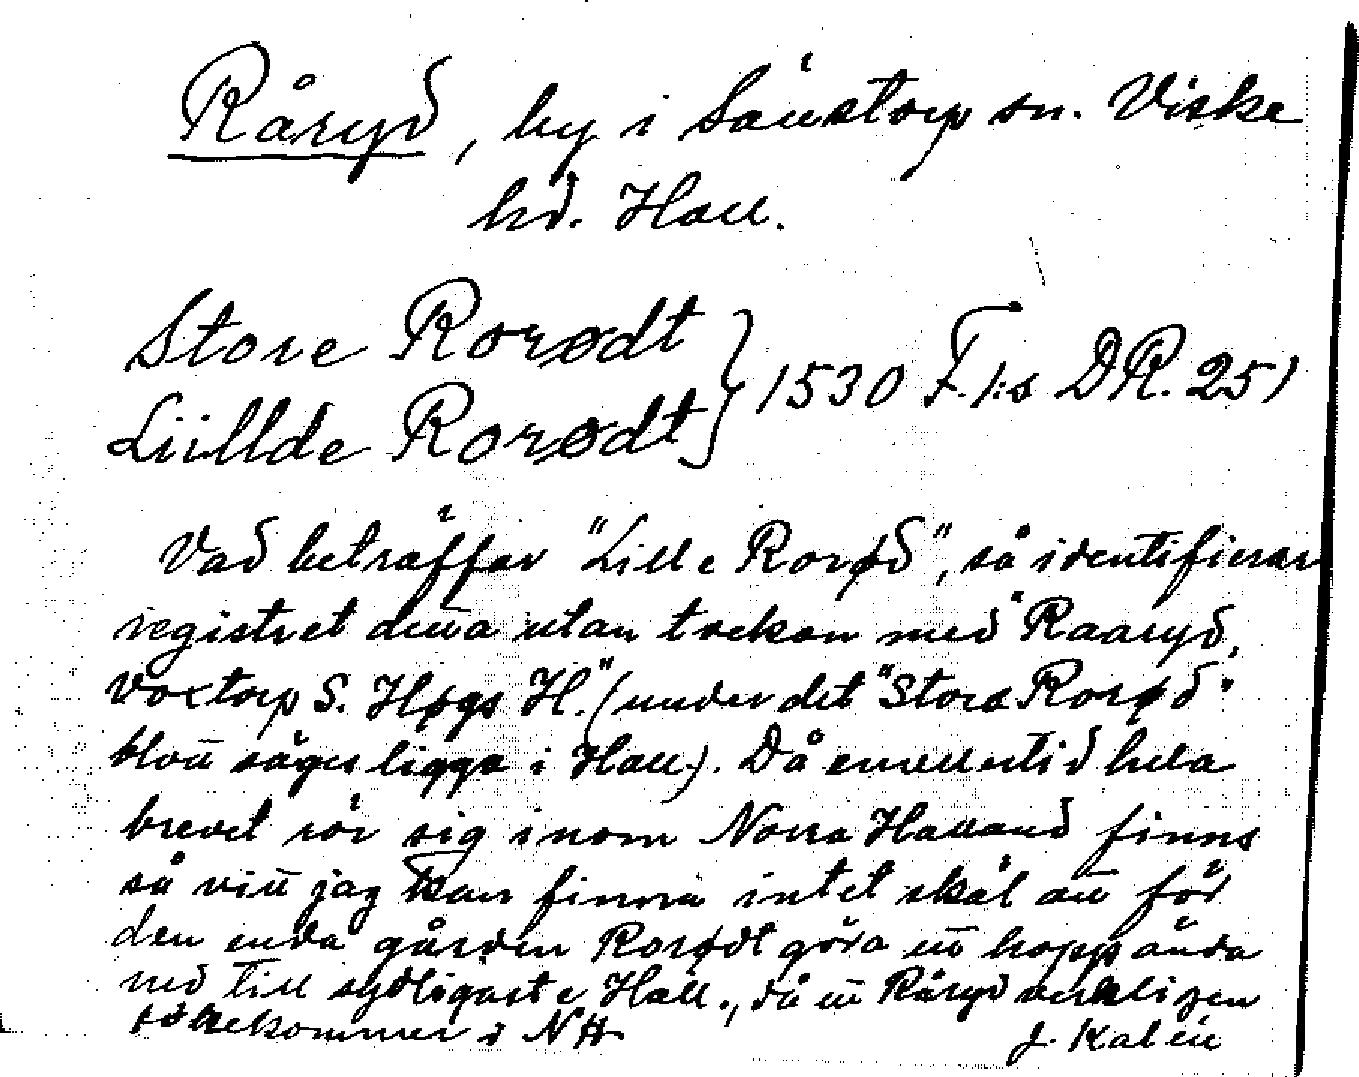 Råryd, by i Källstorp sn. Viske
hd. Hall.
Store Rorødt
Liillde Rorødt } 1530 F. I:s DR. 251
Vad beträffar "Lille Rorød", så identifierar
registret denna utan tvekan med "Raaryd,
Voxtorp S. Høgs H." (under det "Stora Rorød"
blott säges ligga i Hall.). Då emellertid hela
brevet rör sig inom Norra Halland finns
så vitt jag kan finna intet skäl att för
den enda gården Rorødt göra ett hopp ända
ned till sydligaste Hall., då ett Råryd verkligen
förekommer i NH
J. Kalén